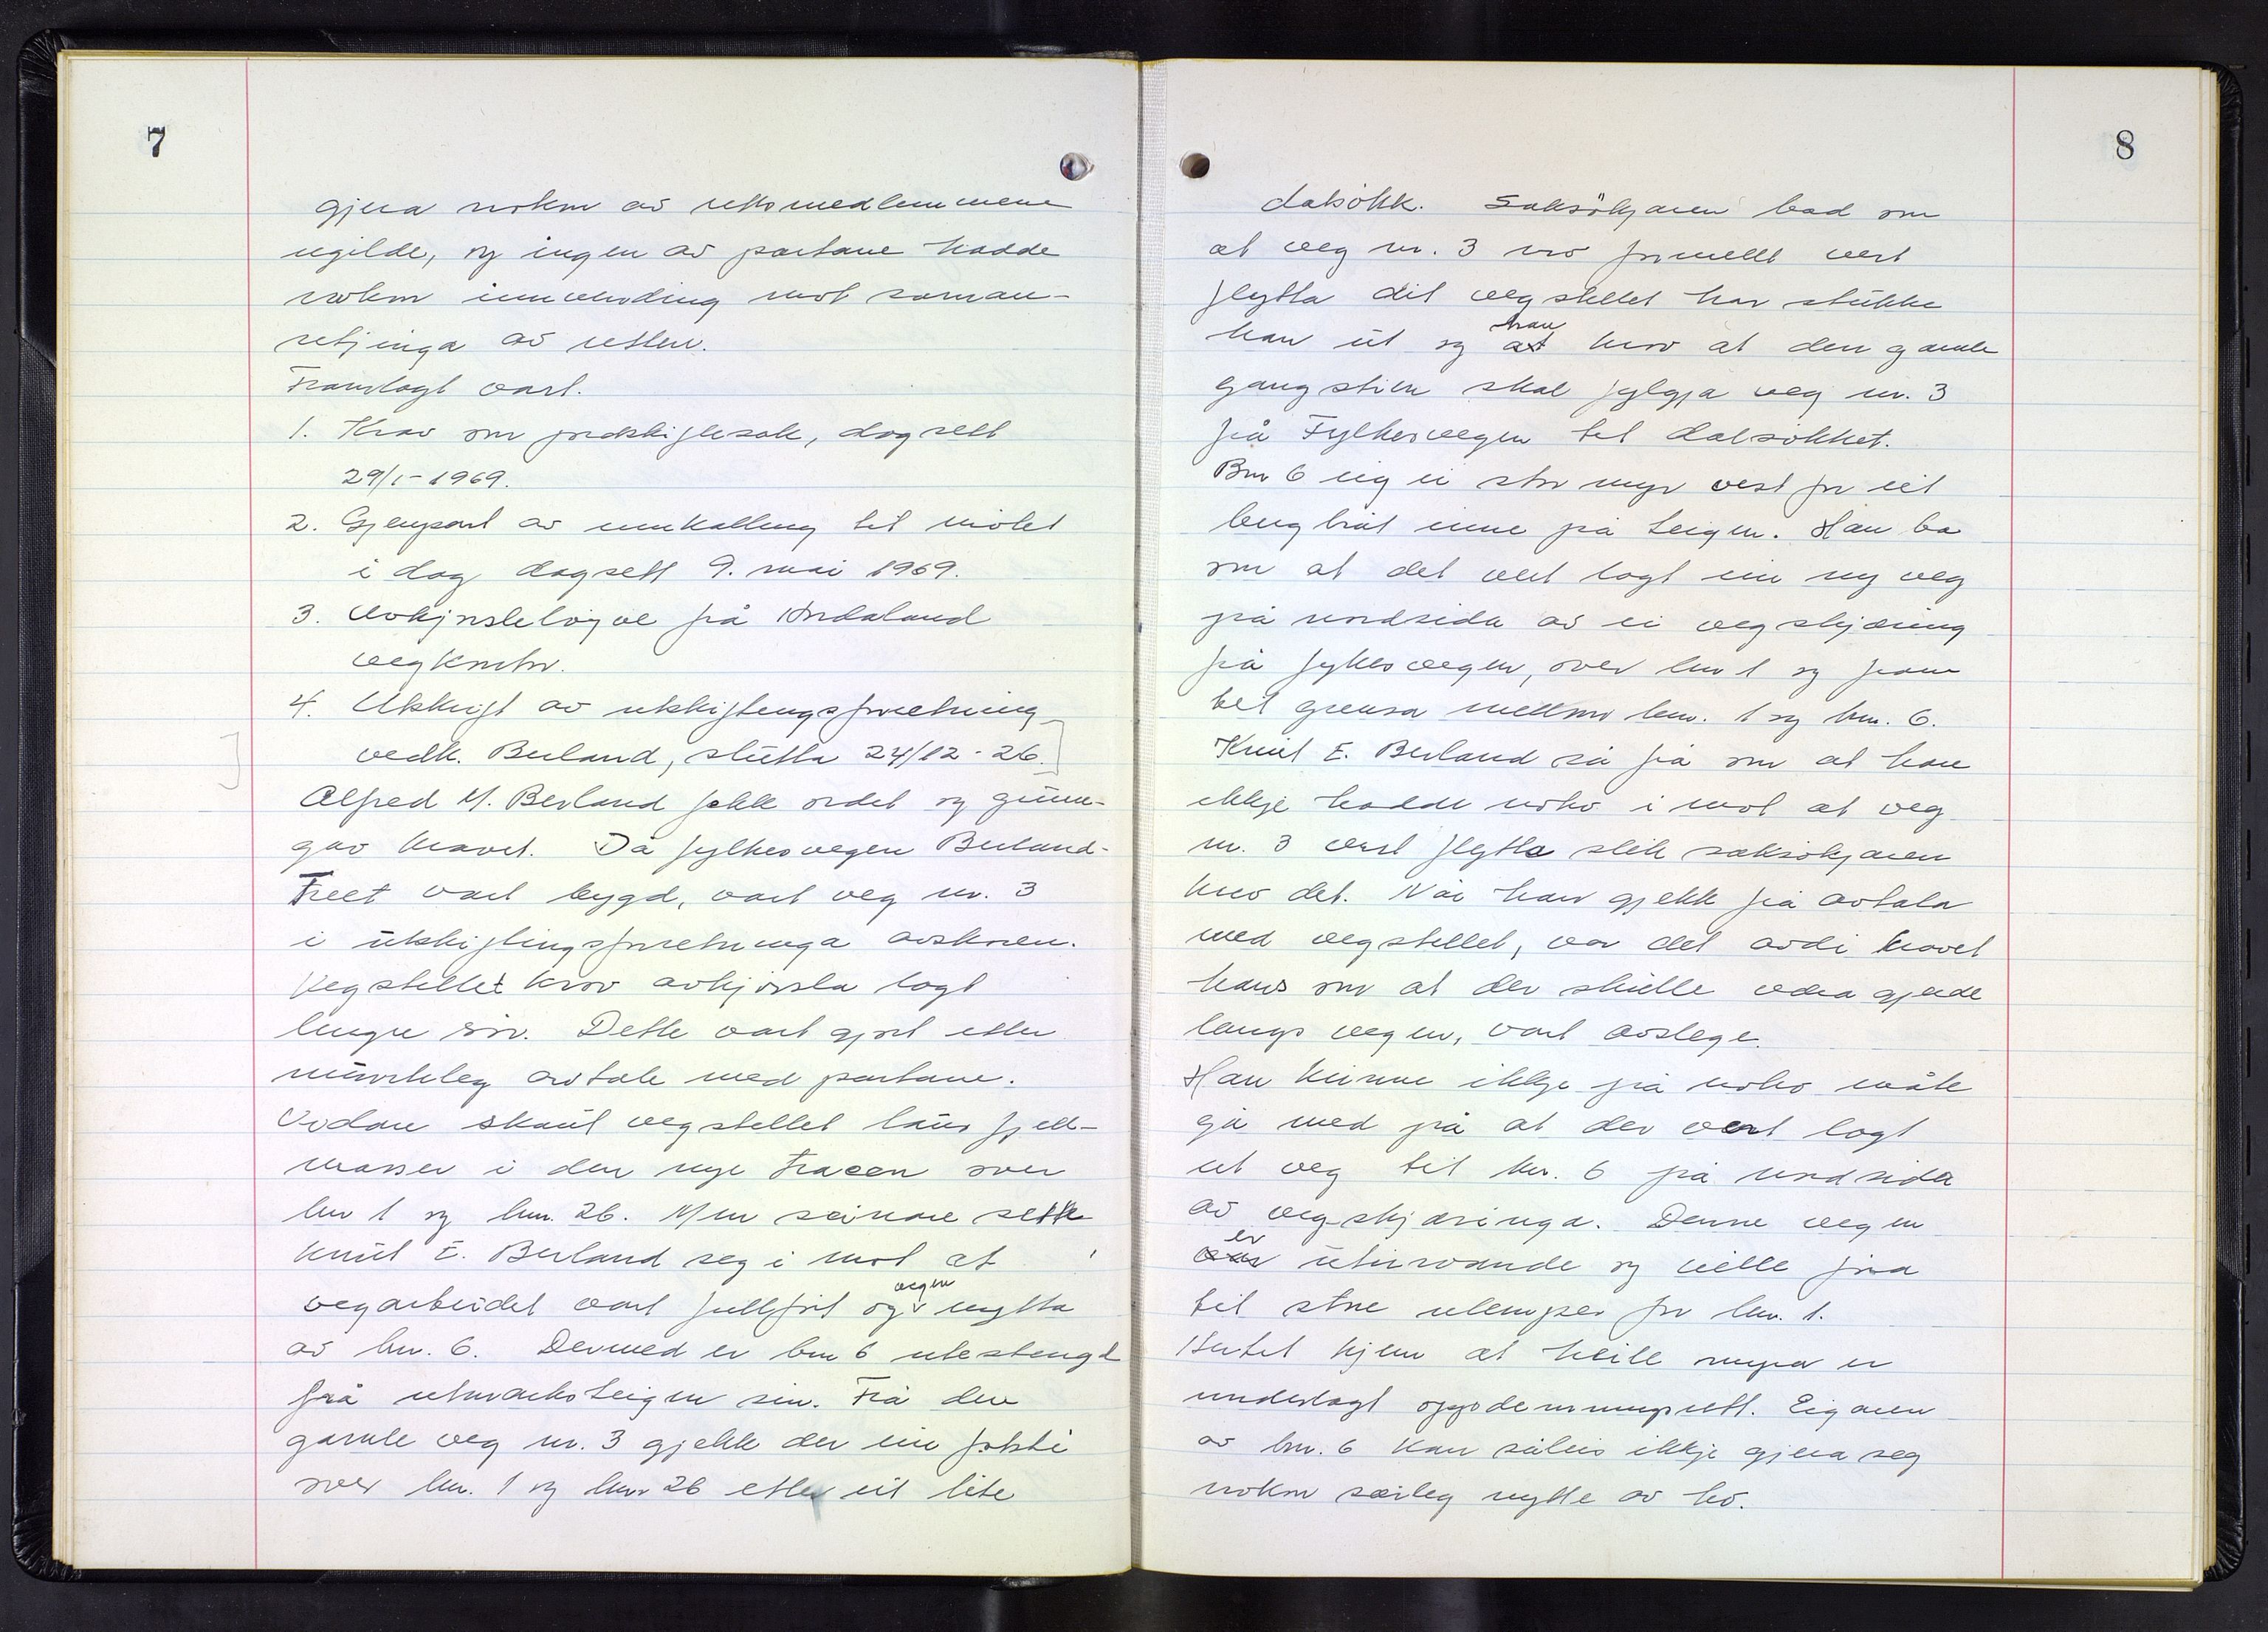 7
gjera nokon av rettsmedlemmene
ugilde, og ingen av partane hadde
nokon innvending mot saman-
setjinga av retten.
Framlagt vart.
1. Krav om jordskiftesak, dagsett
29/1-1969.
2. Gjenpart av innkalling til møtet
i dag dagsett 9. mai 1969.
3. Avkjørsleløyve frå Hordaland
vegkontor.
4. Utskrift av utskiftingsforretning
vedk. Berland, slutta 24/12-26.
Alfred M. Berland fekk ordet og grunn-
gav kravet. Då fylkesvegen Berland-
Treet vart bygd, vart veg nr. 3
i utskiftingsforretninga avskoren.
Vegstellet krov avkjørsla lagt
lengre sør. Dette vart gjort etter
munnleg avtale med partane.
Vidare skaut vegstellet laus fjell-
masser i den nye traceen over
bnr 1 og bnr. 26. Men seinare sette
Knut E. Berland seg i mot at
vegarbeidet vart fullført og vegen nytta
av bnr. 6. Dermed er bnr 6 utestengd
frå utmarksteigen sin. Frå den
gamle veg nr. 3 gjekk der ein fotsti
over bnr. 1 og bnr 26 etter eit lite
8
dalsøkk. Saksøkjaren bad om
at veg nr. 3 no formellt vert
flytta dit vegstellet har stukke
han ut og han krov at den gamle
gangstien skal fylgja veg nr. 3
frå Fylkesvegen til dalsøkket.
Bnr 6 eig ei stor myr vest for eit
berg inne på teigen. Han ba
om at det vert lagt ein ny veg
på nordsida av ei vegskjæring
frå fylkesvegen, over bnr 1 og fram
til grensa mellom bnr. 1 og bnr. 6.
Knut E. Berland sa frå om at han
ikkje hadde noko i mot at veg
nr. 3 vart flytta slik saksøkjaren
krov det. Når han gjekk frå avtala
med vegstellet, var det avdi kravet
hans om at der skulle vera gjerde
langs vegen, vart avslege.
Han kunne ikkje på noko måte
gå med på at der vert lagt
ut veg til bnr. 6 på nordsida
av vegskjæringa. Denne vegen
er uturvande og ville føra
til store ulemper for bnr. 1.
Hertil kjem at heile myra er
underlagt oppdemmingsrett. Eigaren
av bnr. 6 kan såleis ikkje gjera seg
nokon særleg nytte av ho.